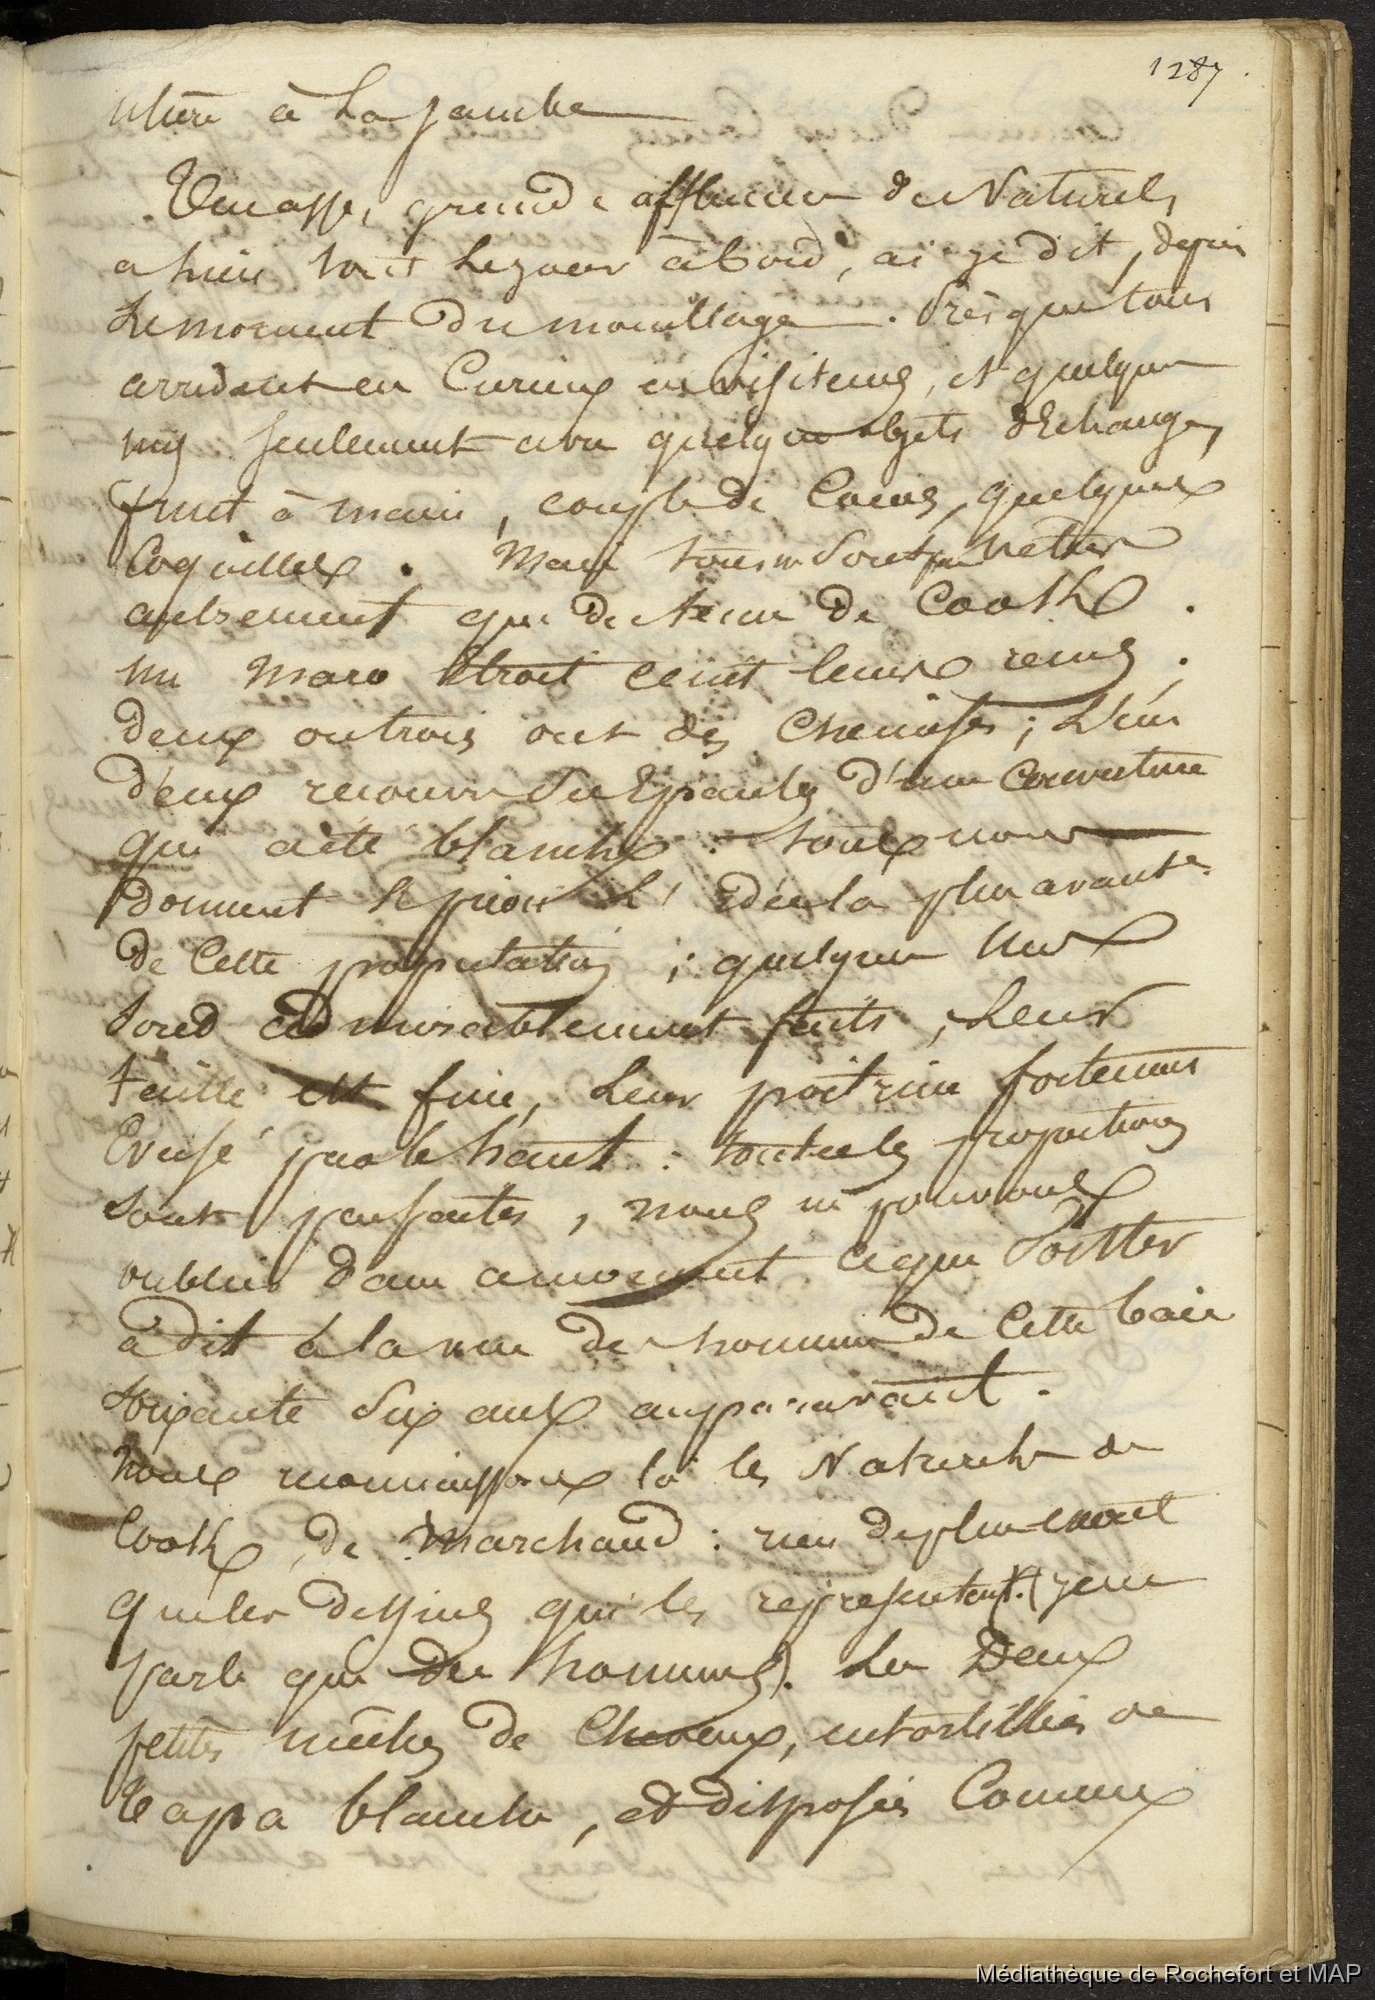 1287.
ulcère à la jambe
grande affluence de Naturels
a lieu tous les jours à bord, ai-je dit, depuis
le moment du mouillage. Presque tous
arrivent en Curieux en visiteurs, et quelques
uns seulement avec quelques objets d'Echange,
fruit à main, couple de Cocos, quelques
Coquilles. Mais tous ne sont vetus
autrement que du tems de Cook.
un Maro étroit ceint leurs reins.
deux ou trois ont des Chemises; L'un
d'eux recouvre ses Epaules d'une Couverture
qui a été blanche. tous nous
donnent le plus L'idée la plus avant.
de Cette population; quelques uns
sont admirablement faits, leur
taille est fine, leur poitrine fortement
Creusé par le haut: toutes les proportions
sont parfaites, nous ne pouvons
oublier dans ce moment ce que Forster
a dit à la vue des hommes de Cette baie
soixante six ans auparavant.
Nous reconnaissons là les Naturels de
Cook, de Marchand: rien de plus exact
que les dessins qui les représentent. (je ne
parle que des hommes). Les Deux
petites mèches de Cheveux, entortillées de
tapa blanche, et disposées Comme
Médiathèque de Rochefort et MAP